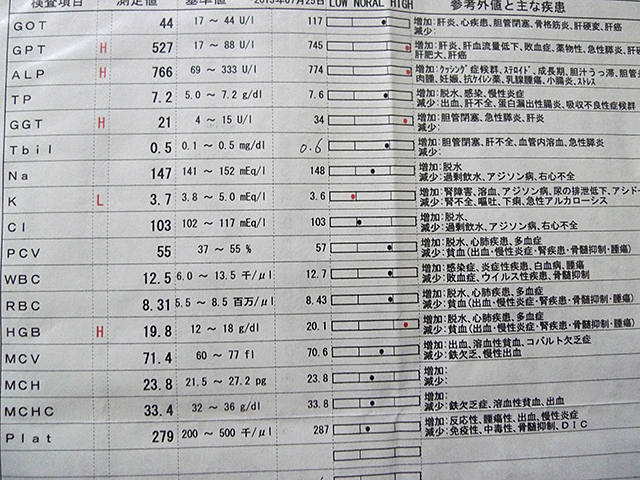 検査項目 測定値 2013年07月25日 LOW NORAL HIGH 参考外値と主な疾患
GOT 44 17 ～ 44 U/l 117 増加:肝炎、心疾患、胆管閉塞、骨格筋炎、肝硬変、肝癌
減少:
GPT H 527 17 ～ 88 U/l 745 増加:肝炎、肝血流量低下、敗血症、薬物性、急性膵炎、肝硬
肝肥大、肝癌
ALP H 766 69 ～ 333 U/l 774 増加:クッシング症候群、ステロイド、成長期、胆汁うっ滞、胆管
肉腫、妊娠、抗ケイレン薬、乳腺腫瘍、小腸炎、ストレス
TP 7.2 5.0 ～ 7.2 g/dl 7.6 増加:脱水、感染、慢性炎症
減少:出血、肝不全、蛋白漏出性腸炎、吸収不良性症候群
GGT H 21 4 ～ 15 U/l 34 増加:胆管閉塞、急性膵炎、肝炎
減少:
Tbil 0.5 0.1 ～ 0.5 mg/dl 0.6 増加:胆管閉塞、肝不全、血管内溶血、急性膵炎
減少:
Na 147 141 ～ 152 mEq/l 148 増加:脱水
減少:過剰飲水、アジソン病、右心不全
K L 3.7 3.8 ～ 5.0 mEq/l 3.6 増加:腎障害、溶血、アジソン病、尿の排泄低下、アシドー
減少:腎不全、嘔吐、下痢、急性アルカローシス
Cl 103 102 ～ 117 mEq/l 103 増加:脱水、
減少:過剰飲水、アジソン病、右心不全
PCV 55 37 ～ 55 % 57 増加:脱水、心肺疾患、多血症
減少:貧血(出血・慢性炎症・腎疾患・骨髄抑制・腫瘍)
WBC 12.5 6.0 ～ 13.5 千/μl 12.7 増加:感染症、炎症性疾患、白血病、腫瘍
減少:敗血症、ウイルス性疾患、骨髄抑制
RBC 8.31 5.5 ～ 8.5 百万/μl 8.43 増加:脱水、心肺疾患、多血症
減少:貧血(出血・慢性炎症・腎疾患・骨髄抑制・腫瘍)
HGB H 19.8 12 ～ 18 g/dl 20.1 増加:脱水、心肺疾患、多血症
減少:貧血(出血・慢性炎症・腎疾患・骨髄抑制・腫瘍)
MCV 71.4 60 ～ 77 fl 70.6 増加:出血、溶血性貧血、コバルト欠乏症
減少:鉄欠乏、慢性出血
MCH 23.8 21.5 ～ 27.2 pg 23.8 増加:
減少:
MCHC 33.4 32 ～ 36 g/dl 33.8 増加:
減少:鉄欠乏症、溶血性貧血、出血
Plat 279 200 ～ 500 千/μl 287 増加:反応性、腫瘍性、出血、慢性炎症
減少:免疫性、中毒性、骨髄抑制、DIC